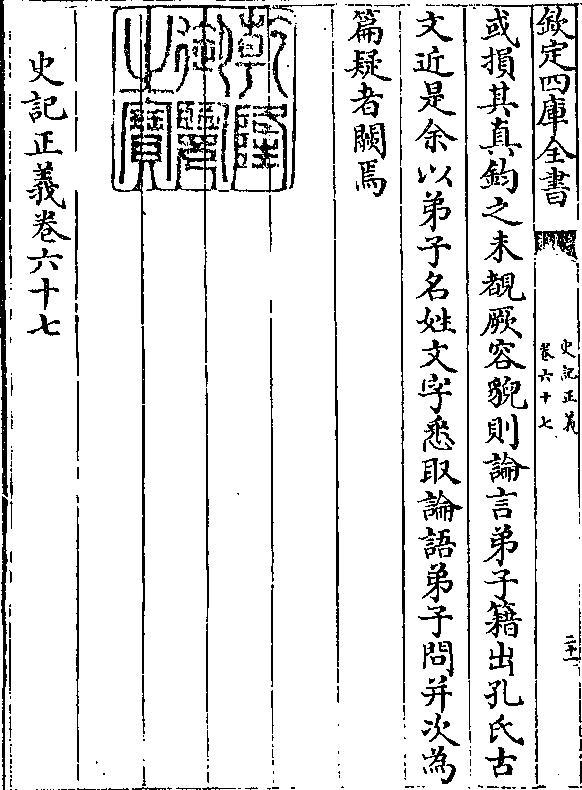 欽定四庫全書
史記正義
卷六十七
二十一
或損其真鈞之未覩厥容貌則論言弟子籍出孔氏古
文近是余以弟子名姓文字悉取論語弟子問并次為
篇疑者闕焉
乾隆
御覽
之寶
史記正義卷六十七